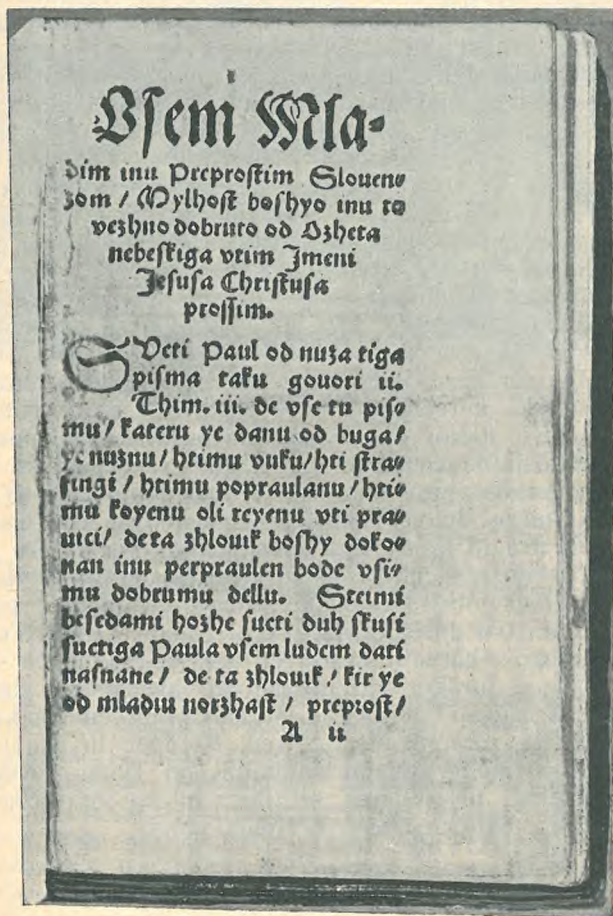 Vſem Mla⸗
dim inu Preproſtim Slouen⸗
zom / Mylhoſt boſhyo inu to
vezhno dobruto od Ozheta
nebeſkiga vtim Jmeni
Jeſuſa Chriſtuſa
proſſim.
SVeti Paul od nuza tiga
piſma taku gouori ii.
Thim. iii. de vſe tu piſ⸗
mu / kateru ye danu od buga /
ye nuznu / htimu vuku / hti ſtra⸗
fingi / htimu popraulanu / hti⸗
mu koyenu oli reyenu vti pra⸗
uici / de ta zhlouik boſhy doko⸗
nan inu perpraulen bode vſi⸗
mu dobrumu dellu. Steimi
beſedami hozhe ſueti duh ſkuſi
ſuetiga Paula vſem ludem dati
naſnane / de ta zhlouik / kir ye
od mladiu norzhaſt / preproſt /
A ii